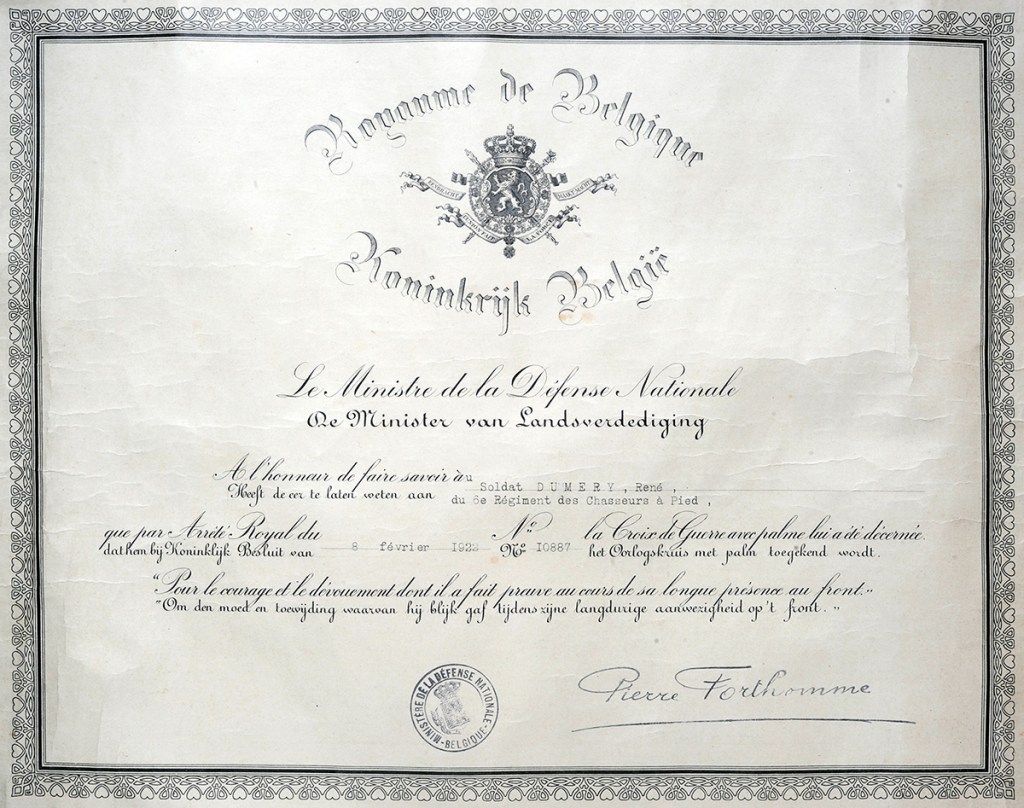 Royaume de Belgique
EENDRACHT MAAKT MACHT
L'UNION FAIT LA FORCE
Koninkrijk België
Le Ministre de la Défense Nationale
De Minister van Landsverdediging
A l'honneur de faire savoir à u Soldat DUMERY, René ,
Heeft de eer te laten weten aan du 6e Régiment des Chasseurs à Pied ,
que par Arrêté Royal du N° la Croix de Guerre avec palme lui a été décernée.
dat hem bij Koninklijk Besluit van 8 février 1922 N° I0887 het Oorlogskruis met palm toegekend wordt.
"Pour le courage et le dévouement dont il a fait preuve au cours de sa longue présence au front."
"Om den moed en toewijding waarvan hij blijk gaf tijdens zijne langdurige aanwezigheid op 't front."
MINISTÈRE DE LA DÉFENSE NATIONALE
BELGIQUE
Pierre Forthomme